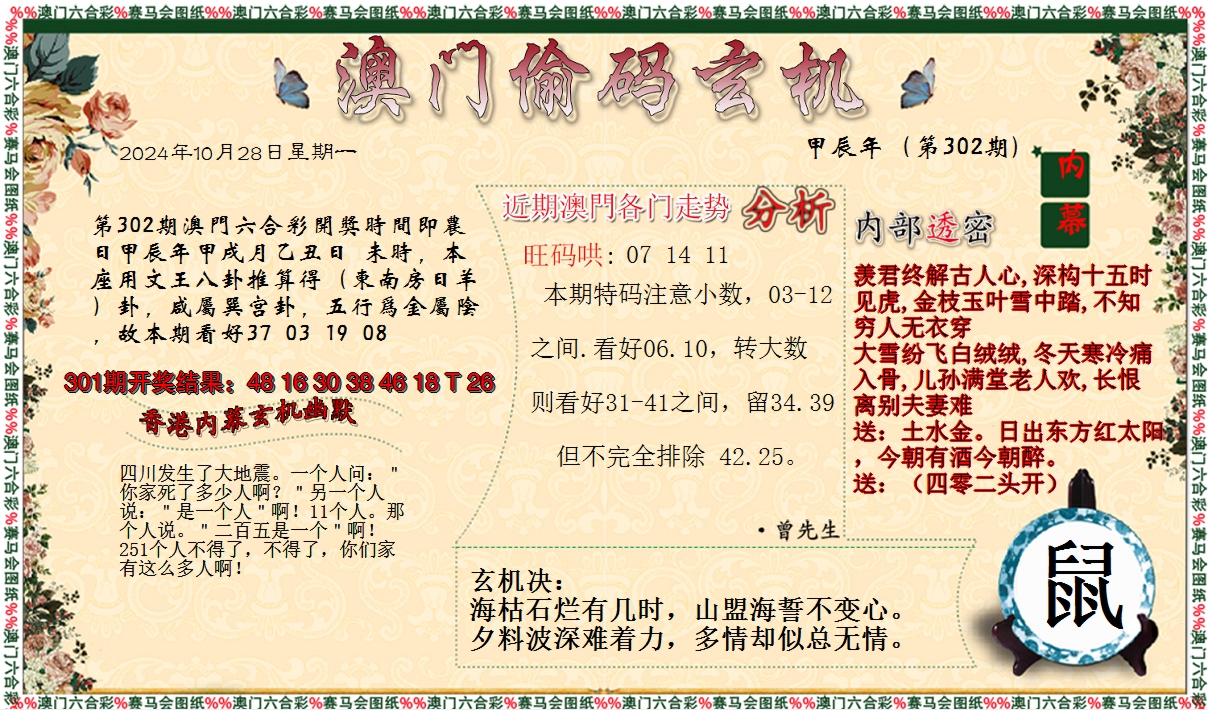 %%澳门六合彩%赛马会图纸%%澳门六合彩%赛马会图纸%%澳门六合彩%赛马会图纸%%澳门六合彩%赛马会图纸%%澳门六合彩%赛马会图纸%%澳门六合彩%赛马会图纸%%
澳门偷码玄机
2024年10月28日星期一
甲辰年 (第302期)
内幕
第302期澳門六合彩開獎時間即農
日甲辰年甲戌月乙丑日 未時，本
座用文王八卦推算得（東南房日羊
）卦，咸屬巽宫卦，五行爲金屬陰
，故本期看好37 03 19 08
301期开奖结果：48 16 30 38 46 18 T 26
香港内幕玄机幽默
四川发生了大地震。一个人问："
你家死了多少人啊？"另一个人
说："是一个人"啊！11个人。那
个人说。"二百五是一个"啊！
251个人不得了，不得了，你们家
有这么多人啊！
近期澳門各门走势 分析
旺码哄: 07 14 11
本期特码注意小数，03-12
之间.看好06.10，转大数
则看好31-41之间，留34.39
但不完全排除 42.25。
·曾先生
内部透密
羡君终解古人心,深构十五时
见虎,金枝玉叶雪中踏,不知
穷人无衣穿
大雪纷飞白绒绒,冬天寒冷痛
入骨,儿孙满堂老人欢,长恨
离别夫妻难
送：土水金。日出东方红太阳
，今朝有酒今朝醉。
送：（四零二头开）
玄机决：
海枯石烂有几时，山盟海誓不变心。
夕料波深难着力，多情却似总无情。
鼠
%%澳门六合彩%赛马会图纸%%澳门六合彩%赛马会图纸%%澳门六合彩%赛马会图纸%%澳门六合彩%赛马会图纸%%澳门六合彩%赛马会图纸%%澳门六合彩%赛马会图纸%%